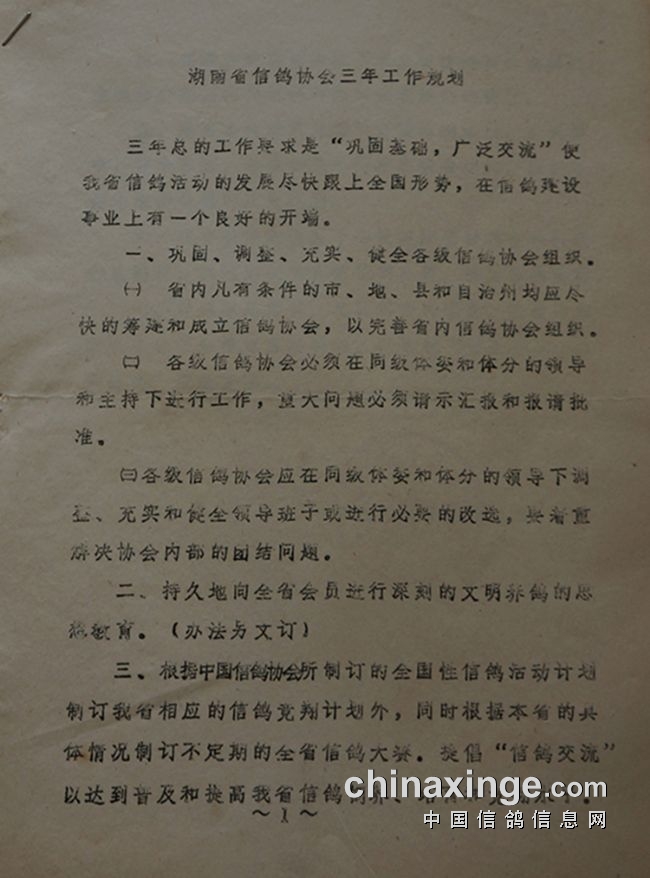 湖南省信鸽协会三年工作规划
三年总的工作要求是“巩固基础，广泛交流”使
我省信鸽活动的发展尽快跟上全国形势，在信鸽建设
事业上有一个良好的开端。
一、巩固、调整、充实、健全各级信鸽协会组织。
㈠ 省内凡有条件的市、地、县和自治州均应尽
快的筹建和成立信鸽协会，以完善省内信鸽协会组织。
㈡ 各级信鸽协会必须在同级体委和体分的领导
和主持下进行工作，重大问题必须请示汇报和报请批
准。
㈢各级信鸽协会应在同级体委和体分的领导下调
整、充实和健全领导班子或进行必要的改选，要着重
解决协会内部的团结问题。
二、持久地向全省会员进行深刻的文明养鸽的思
想教育。（办法另文订）
三、根据中国信鸽协会所制订的全国性信鸽活动计划
制订我省相应的信鸽竞翔计划外，同时根据本省的具
体情况制订不定期的全省信鸽大赛。提倡“信鸽交流”
以达到普及和提高我省信鸽饲养、
～1～
chinaxinge.com
中国信鸽信息网